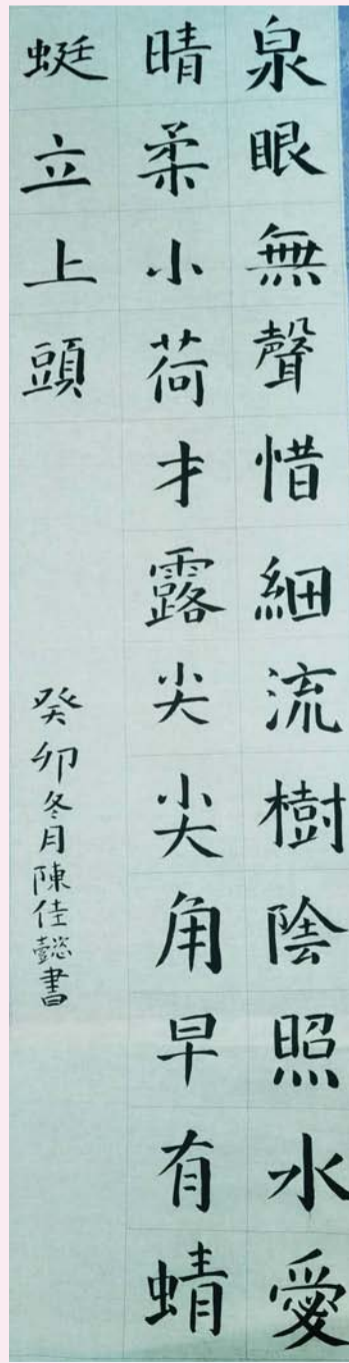 泉眼無聲惜細流樹陰照水愛
晴柔小荷才露尖尖角早有蜻
蜓立上頭
癸卯冬月陳佳懿書